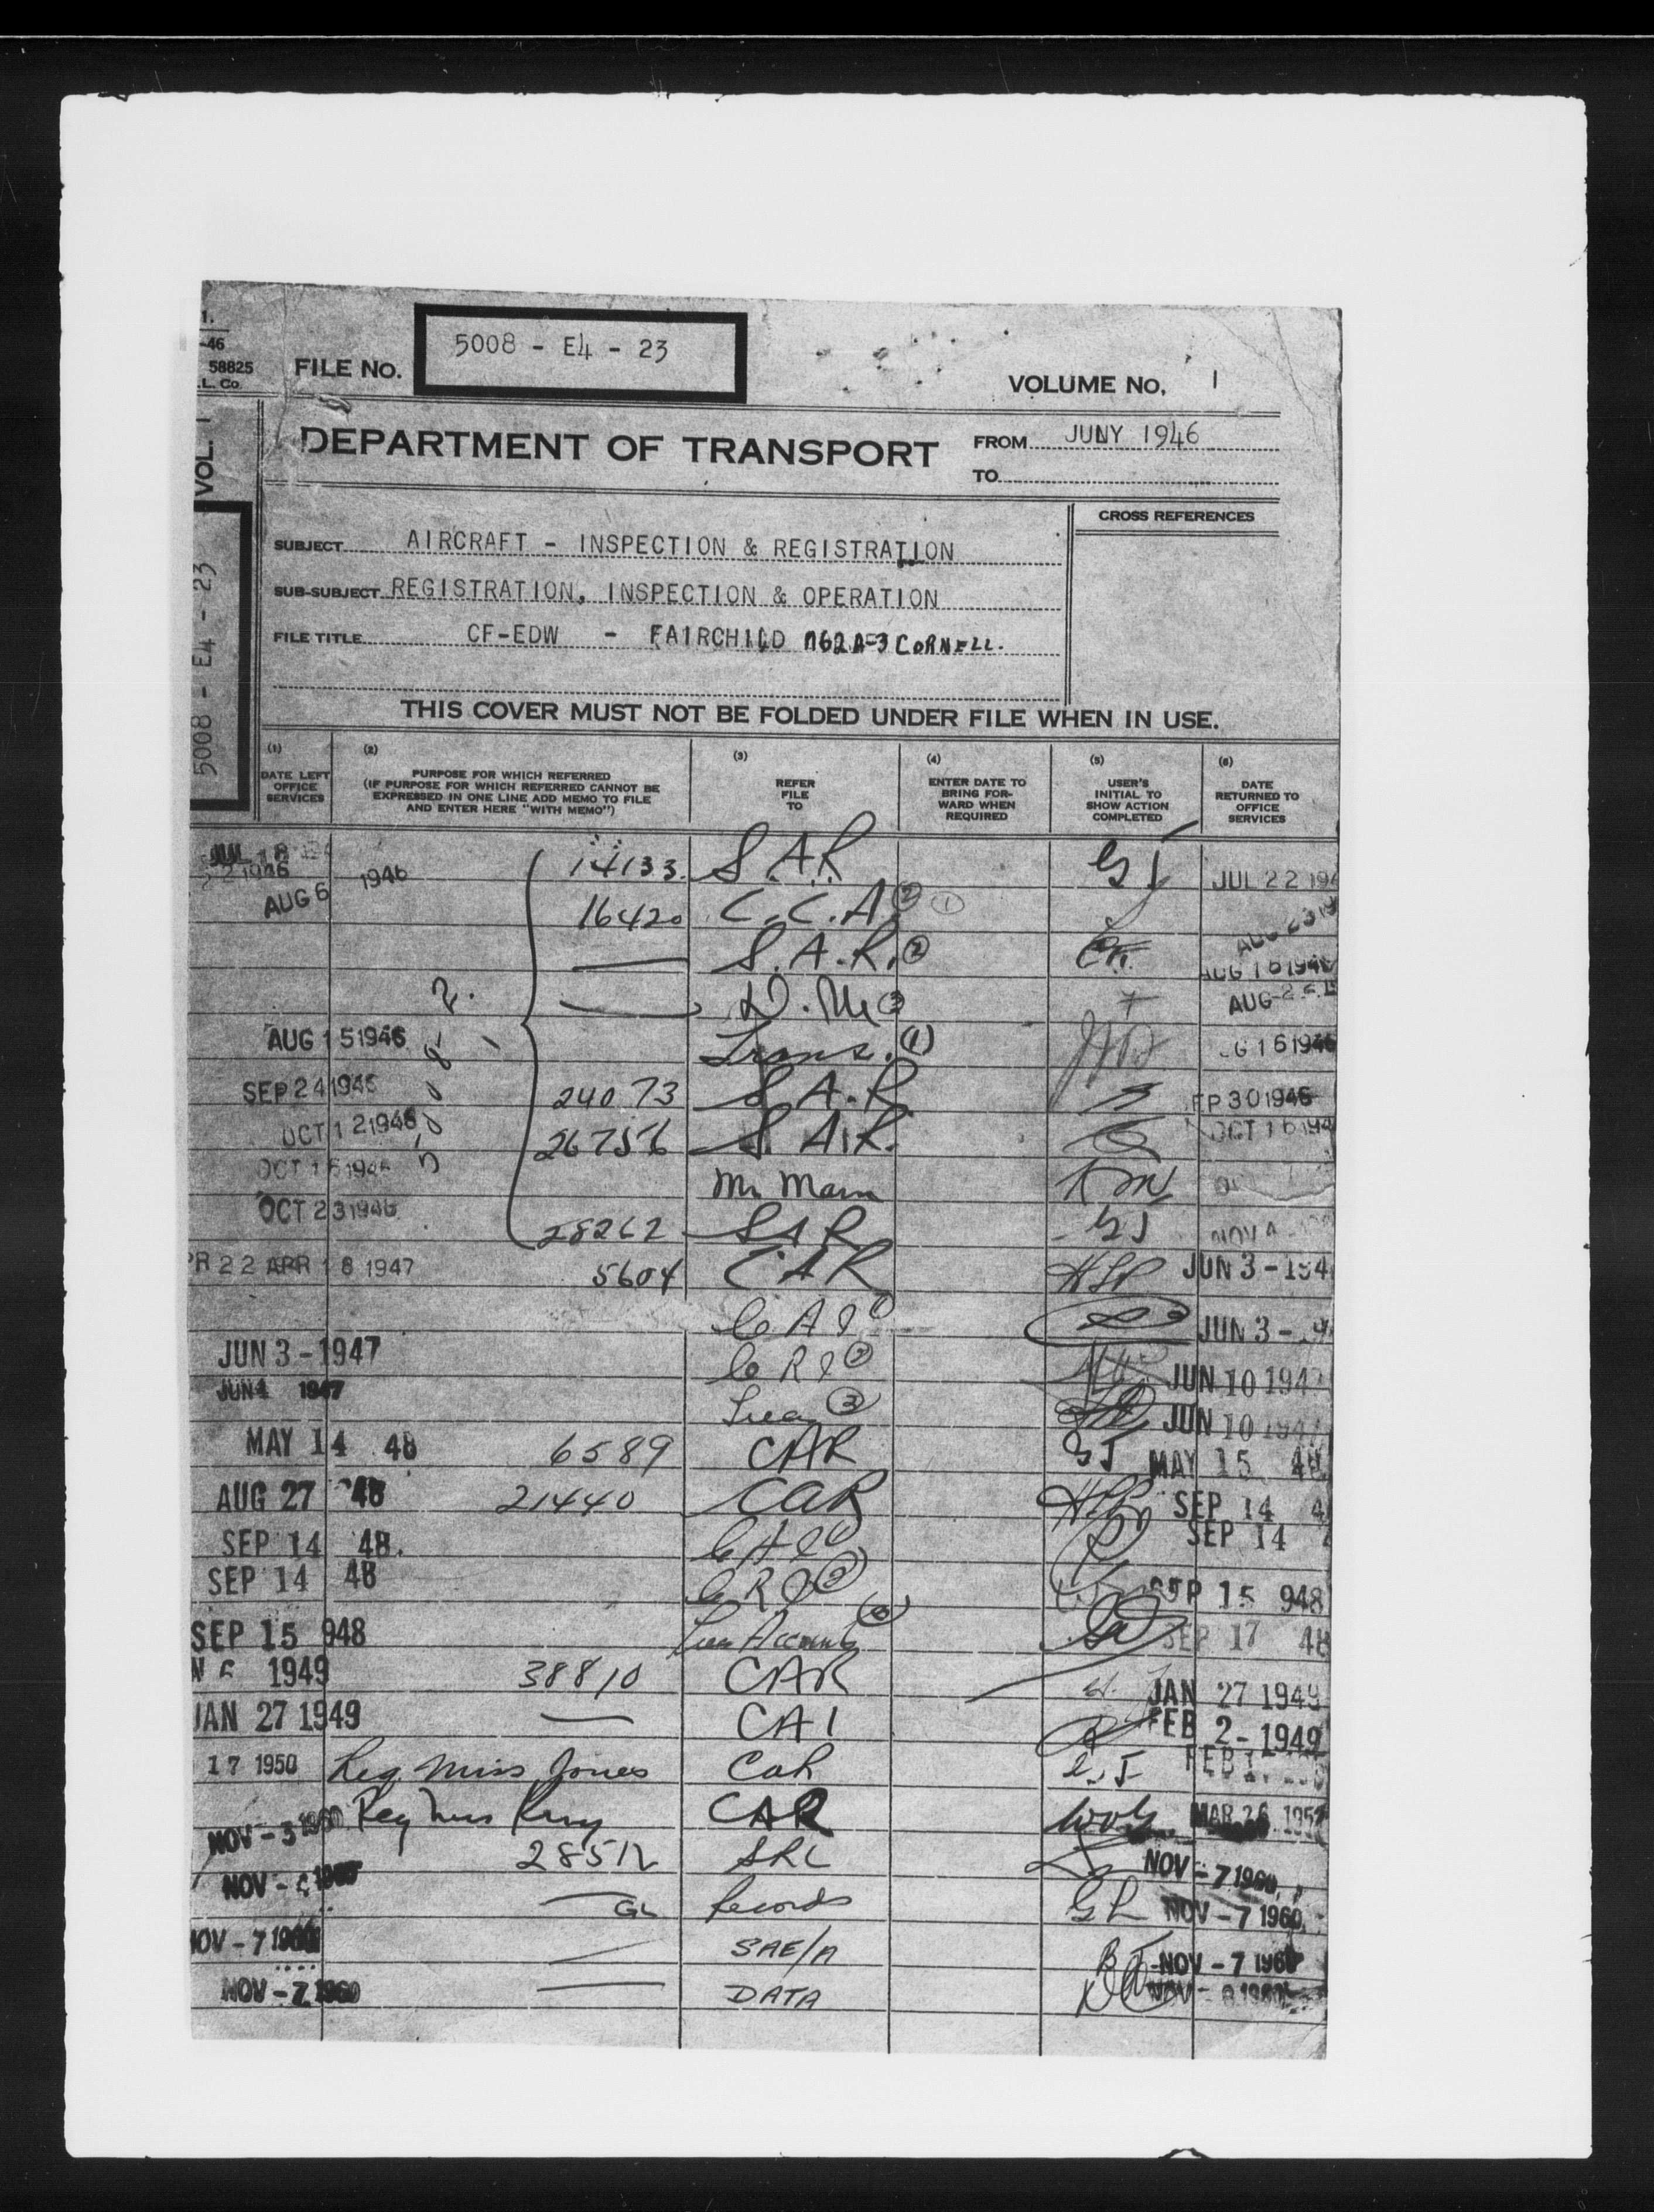 1.
-46
58825
.L. Co.
FILE NO.
5008 - E4 - 23
VOLUME NO. 1
VOL. 1
DEPARTMENT OF TRANSPORT
FROM JULY 1946
TO
5008 - E4 - 23
CROSS REFERENCES
SUBJECT AIRCRAFT - INSPECTION & REGISTRATION
SUB-SUBJECT REGISTRATION, INSPECTION & OPERATION
FILE TITLE CF-EDW - FAIRCHILD M62A-3 CORNELL.
THIS COVER MUST NOT BE FOLDED UNDER FILE WHEN IN USE.
(1) DATE LEFT OFFICE SERVICES
(2) PURPOSE FOR WHICH REFERRED (IF PURPOSE FOR WHICH REFERRED CANNOT BE EXPRESSED IN ONE LINE ADD MEMO TO FILE AND ENTER HERE "WITH MEMO")
(3) REFER FILE TO
(4) ENTER DATE TO BRING FORWARD WHEN REQUIRED
(5) USER'S INITIAL TO SHOW ACTION COMPLETED
(6) DATE RETURNED TO OFFICE SERVICES
JUL 18 14133 S.A.R GJ JUL 22 194
22 1946
AUG 6 1946 16420 C.C.A. 2 1 AUG 23 19
S.A.R. 2 AUG 16 1946
3 AUG 2
AUG 15 1946 Trans. (1) G 16 1946
SEP 24 1946 24073 S.A.R EP 30 1946
OCT 12 1946 26756 S.A.R. OCT 16 194
OCT 15 1946 Mr Mann
OCT 23 1946 28262 SAR GJ NOV 4
PR 22 APR 18 1947 5604 CAR HLP JUN 3 - 194
C A I 1 JUN 3 -
JUN 3 - 1947 C R I 2 JUN 10 1947
JUN 4 1947 Treas 3 JUN 10 1947
MAY 14 48 6589 CAR GJ MAY 15 48
AUG 27 48 21440 CAR SEP 14 4
SEP 14 48. C A I 1 SEP 14
SEP 14 48 C R I 2 SEP 15 948
SEP 15 948 Treas Accounts SEP 17 48
N 6 1949 38810 CAR JAN 27 1949
JAN 27 1949 CAI FEB 2 - 1949
17 1950 Req. Miss Jones CAR FEB
NOV - 3 1960 Req CAR MAR 26 1952
NOV - 1960 28512 SRL NOV - 7 1960
GL Records GL NOV - 7 1960
NOV - 7 1960 SAE/A NOV - 7 1960
NOV - 7 1960 DATA NOV - 8 1960